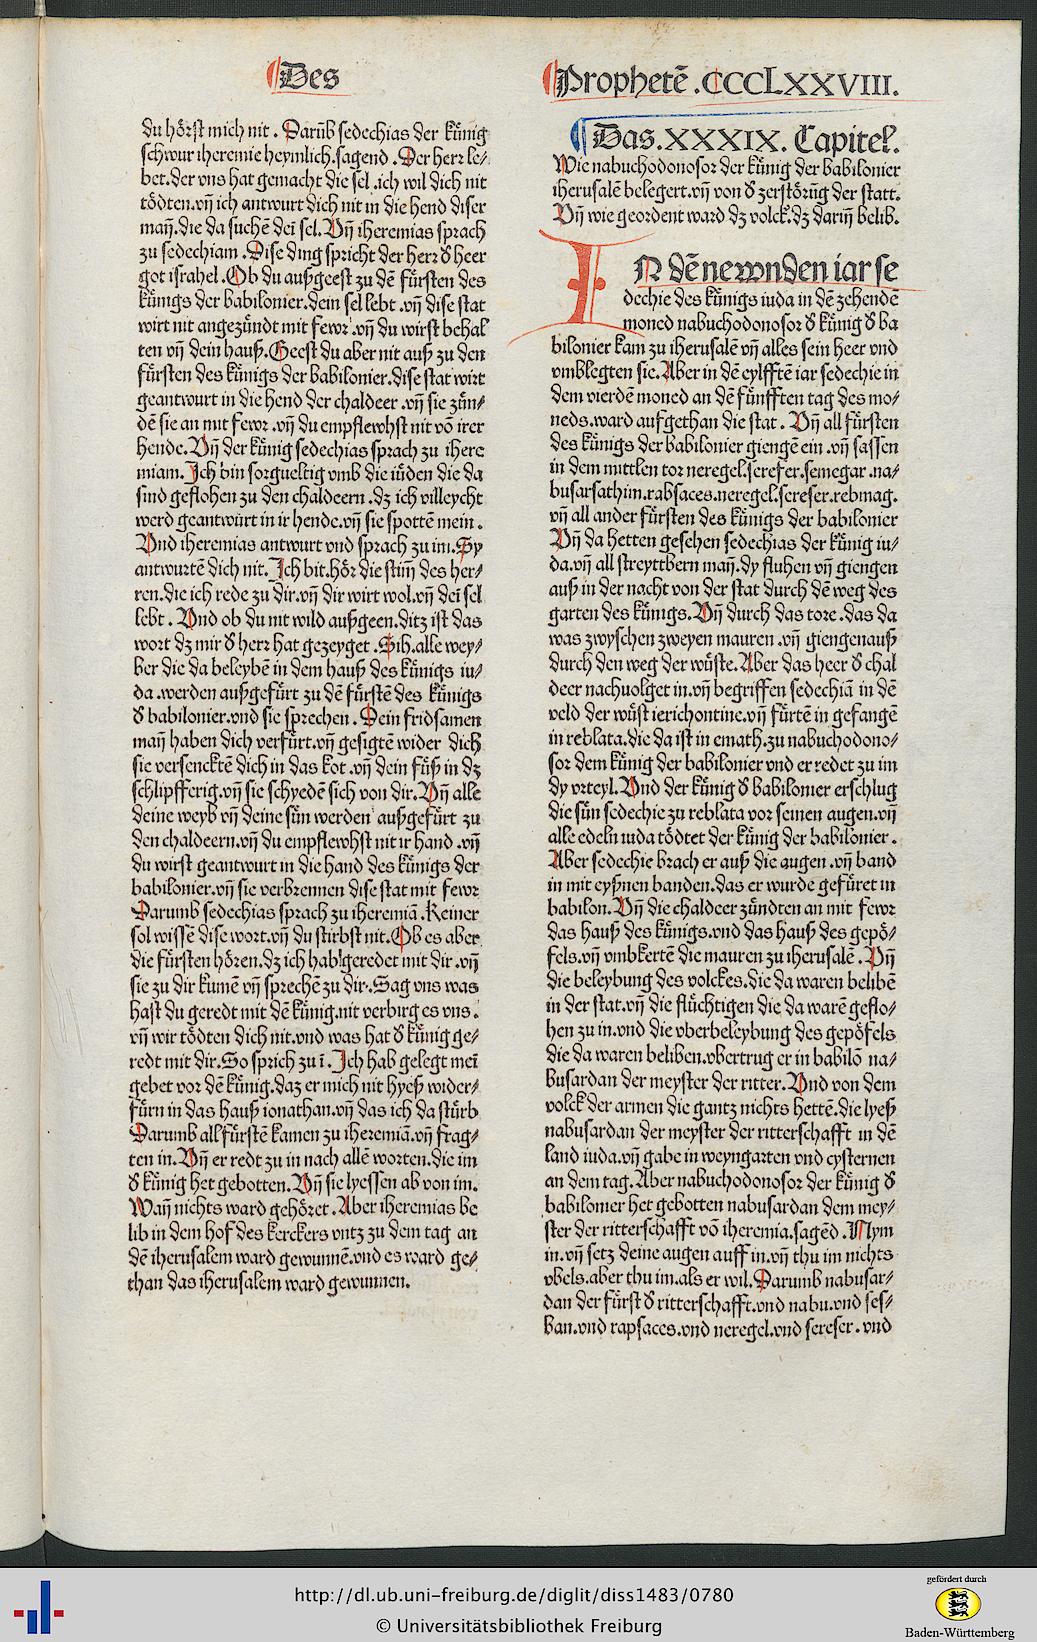 Des
Prophetē .CCCLXXVIII.
du hörst mich nit. Darūb sedechias der künig
schwur iheremie heymlich.sagend.Der herr le⸗
bet.der vns hat gemacht die sel.ich wil dich nit
tödten.vn̄ ich antwurt dich nit in die hend diser
man̄.die da suchē dei sel.Vn̄ iheremias sprach
zu sedechiam.Dise ding spricht der herr d̕ heer
got israhel.Ob du außgeest zu dē fürsten des
künigs der babilonier.dein sel lebt.vn̄ dise stat
wirt nit angezündt mit fewr.vn̄ du wirst behal
ten vn̄ dein hauß.Geest du aber nit auß zu den
fürsten des künigs der babilonier.dise stat wirt
geantwurt in die hend der chaldeer.vn̄ sie zün⸗
dē sie an mit fewr.vn̄ du empflewhst nit vō irer
hende.Vn̄ der künig sedechias sprach zu ihere
miam.Jch bin sorgueltig vmb die iuden die da
sind geflohen zu den chaldeern.dz ich villeycht
werd geantwürt in ir hende.vn̄ sie spottē mein.
Vnd iheremias antwurt vnd sprach zu im.Sy
antwurtē dich nit.Jch bit.hör die stim̄ des her⸗
ren.die ich rede zu dir.vn̄ dir wirt wol.vn̄ deī sel
lebt. Vnd ob du nit wild außgeen.ditz ist das
wort dz mir d̕ herr hat gezeyget.Sih.alle wey⸗
ber die da beleybē in dem hauß des künigs iu⸗
da.werden außgefürt zu dē fürstē des künigs
d̕ babilonier.vnd sie sprechen. Dein fridsamen
man̄ haben dich verfürt.vn̄ gesigtē wider dich
sie versencktē dich in das kot.vn̄ dein füß in dz
schlipfferig.vn̄ sie schyedē sich von dir.Vn̄ alle
deine weyb vn̄ deine sün werden außgefürt zu
den chaldeern.vn̄ du empflewhst nit ir hand.vn̄
du wirst geantwurt in die hand des künigs der
babilonier.vn̄ sie verbrennen dise stat mit fewr
Darumb sedechias sprach zu iheremiā.Keiner
sol wissē dise wort.vn̄ du stirbst nit.Ob es aber
die fürsten hören.dz ich hab geredet mit dir.vn̄
sie zu dir kumē vn̄ sprechē zu dir.Sag vns was
hast du geredt mit dē künig.nit verbirg es vns.
vn̄ wir tödten dich nit.vnd was hat d̕ künig ge⸗
redt mit dir.So sprich zu ī.Jch hab gelegt meī
gebet vor dē künig.daz er mich nit hyeß wider⸗
fürn in das hauß ionathan.vn̄ das ich da stürb
Darumb all fürstē kamen zu iheremiā.vn̄ frag⸗
ten in.Vn̄ er redt zu in nach allē worten.die im
d̕ künig het gebotten.Vn̄ sie lyessen ab von im.
Wan̄ nichts ward gehöret.Aber iheremias be
lib in dem hof des kerckers vntz zu dem tag an
dē iherusalem ward gewunnē.vnd es ward ge⸗
than das iherusalem ward gewunnen.
Das.XXXIX. Capitel.
Wie nabuchodonosor der künig der babilonier
iherusalē belegert.vn̄ von d̕ zerstörūg der statt.
Vn̄ wie geordent ward dz volck.dz darin̄ belib.
IN dē newnden iar se
dechie des künigs iuda in dē zehendē
moned nabuchodonosor d̕ künig d̕ ba
bilonier kam zu iherusalē vn̄ alles sein heer vnd
vmblegten sie.Aber in dē eylfftē iar sedechie in
dem vierdē moned an dē fünfften tag des mo⸗
neds.ward aufgethan die stat. Vn̄ all fürsten
des künigs der babilonier giengē ein.vn̄ sassen
in dem mittlen tor neregel.serefer.semegar.na⸗
busarsathim.rabsaces.neregel.sereser.rebmag.
vn̄ all ander fürsten des künigs der babilonier
Vn̄ da hetten gesehen sedechias der künig iu⸗
da.vn̄ all streyttbern man̄.dy fluhen vn̄ giengen
auß in der nacht von der stat durch dē weg des
garten des künigs.Vn̄ durch das tore.das da
was zwyschen zweyen mauren.vn̄ giengen auß
durch den weg der wüste.Aber das heer d̕ chal
deer nachuolget in.vn̄ begriffen sedechiā in dē
veld der wüst ierichontine.vn̄ fürtē in gefangē
in reblata.die da ist in emath.zu nabuchodono⸗
sor dem künig der babilonier vnd er redet zu im
dy vrteyl.Vnd der künig d̕ babilonier erschlug
die sün sedechie zu reblata vor seinen augen.vn̄
alle edeln iuda tödtet der künig der babilonier.
Aber sedechie brach er auß die augen.vn̄ band
in mit eyßnen banden.das er wurde gefüret in
babilon.Vn̄ die chaldeer zündten an mit fewr
das hauß des künigs.vnd das hauß des gepö⸗
fels.vn̄ vmbkertē die mauren zu iherusalē.Vn̄
die beleybung des volckes.die da waren belibē
in der stat.vn̄ die flüchtigen die da warē geflo⸗
hen zu in.vnd die vberbeleybung des gepöfels
die da waren beliben.vbertrug er in babilō na⸗
busardan der meyster der ritter.Vnd von dem
volck der armen die gantz nichts hettē.die lyeß
nabusardan der meyster der ritterschafft in dē
land iuda.vn̄ gabe in weyngarten vnd cysternen
an dem tag.Aber nabuchodonosor der künig d̕
babilonier het gebotten nabusardan dem mey⸗
ster der ritterschafft vō iheremia.sagēd.Nym
in.vn̄ setz deine augen auff in.vn̄ thu im nichts
vbels.aber thu im.als er wil.Darumb nabusar⸗
dan der fürst d̕ ritterschafft.vnd nabu.vnd ses⸗
ban.vnd rapsaces.vnd neregel.vnd sereser.vnd
http://dl.ub.uni-freiburg.de/diglit/diss1483/0780
© Universitätsbibliothek Freiburg
gefördert durch
Baden-Württemberg